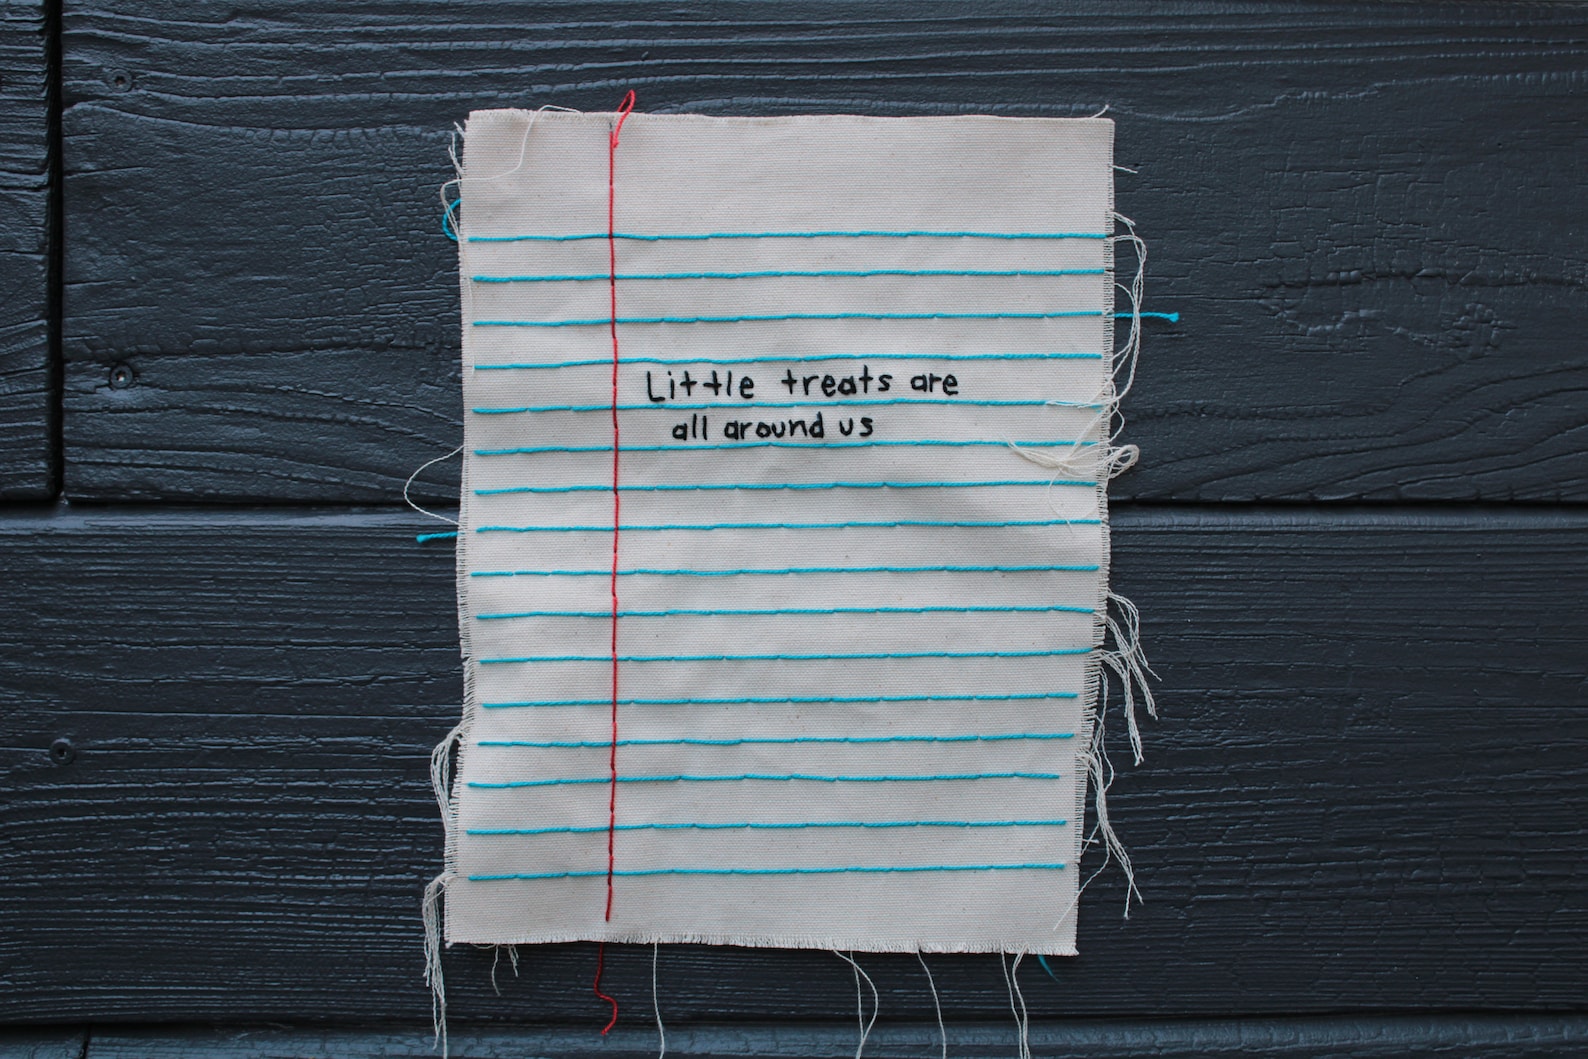 Little treats are
all around us